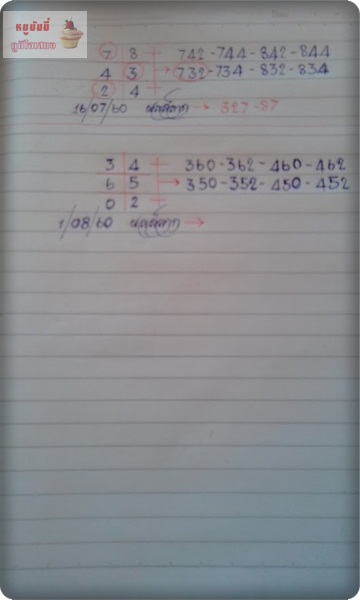 หมูบันบี้
ภูมิใจเสนอ
7 8 742-744-842-844
4 3 → 732-734-832-834
2 4
16/07/60 ผลสลาก → 327-87
3 4 360-362-460-462
6 5 → 350-352-450-452
0 2
1/08/60 ผลสลาก →